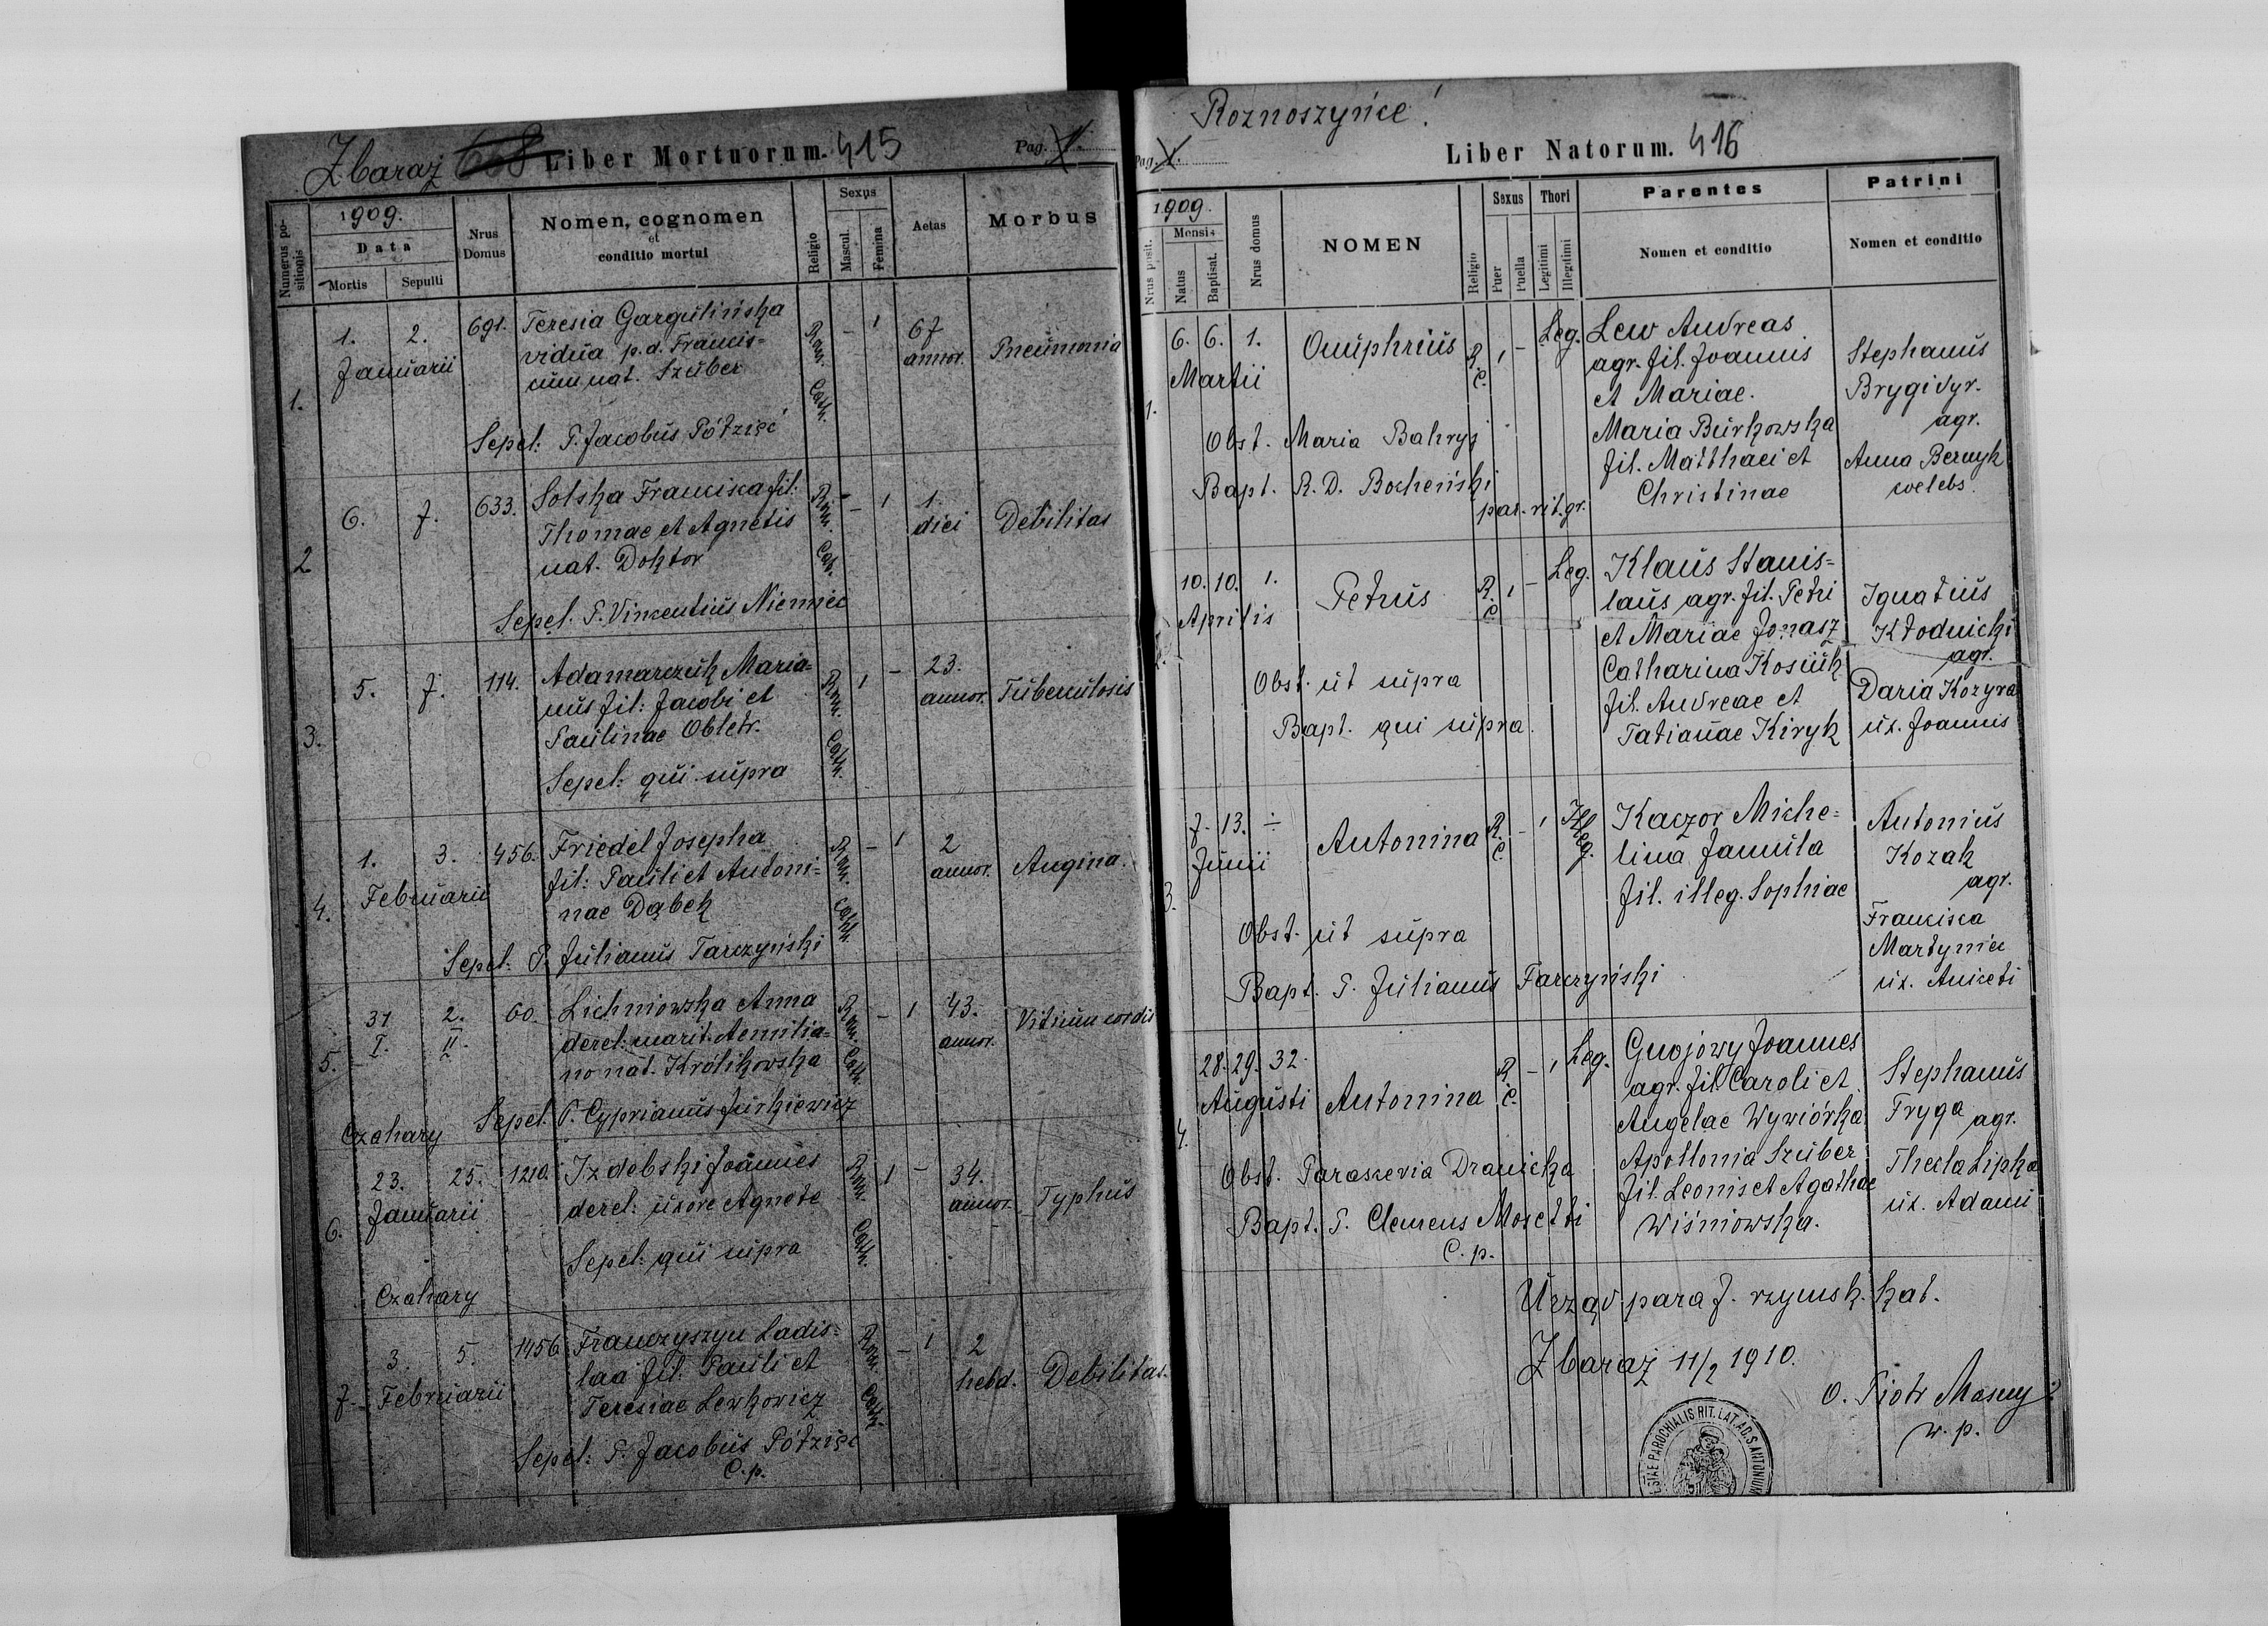 Zbaraż Liber Mortuorum. 415 Pag. 1.
1909.
Numerus positionis
Data
Mortis Sepulti
Nrus Domus
Nomen, cognomen
et
conditio mortui
Religio
Sexus
Mascul. Femina
Aetas
Morbus
1. 1. 2. Januarii 691. Teresia Gargulińska Rom. Cath. - 1 67 annor. Pneumonia
vidua p. d. Francis=
cum nat. Szuber
Sepel: P. Jacobus Półzięć
2 6. 7. 633. Solska Francisca fil: Rom. Cat. - 1 1. diei Debilitas
Thomae et Agnetis
nat. Doktor
Sepel. P. Vincentius Niemiec
3. 5. 7. 114. Adamarczuk Maria= Rom. Cath. 1 - 23. annor. Tuberculosis
nus fil: Jacobi et
Paulinae Obletr.
Sepel: qui supra
4. 1. 3. Februarii 456. Friedel Josepha Rom. Cath. - 1 2 annor. Angina.
fil: Pauli et Antoni=
nae Dąbek
Sepel: P. Julianus Tarczyński
5. 31 I. 2. II. 60. Lichniowska Anna Rom. Cath. - 1 43. annor. Vitium cordis
derel: marit. Aemilia=
no nat. Królikowska
Czahary Sepel. P. Cyprianus Jurkiewicz
6. 23. 25. Januarii 1210. Izdebski Joannes Rom. Cath. 1 - 34. annor. Typhus
derel: uxore Agnete
Sepel: qui supra
Czahary
7. 3. 5. Februarii 1456 Franczyszyn Ladis= Rom. Cath. - 1 2 hebd. Debilitas.
laa fil. Pauli et
Teresiae Lewkowicz
Sepel: P. Jacobus Półzięć
C. p.
Roznoszyńce!
Pag. 1. Liber Natorum. 416
1909.
Nrus posit.
Mensis
Natus Baptisat.
Nrus domus
NOMEN
Religio
Sexus
Puer Puella
Thori
Legitimi Illegitimi
Parentes
Nomen et conditio
Patrini
Nomen et conditio
1. 6. 6. Martii 1. Onuphrius R. C. 1 - Leg.
Lew Andreas
agr. fil. Joannis
et Mariae.
Maria Burkowska
fil. Matthaei et
Christinae
Stephanus
Brygidyr.
agr.
Anna Bernyk
coelebs.
Obst. Maria Bahryj
Bapt. R. D. Bocheński
par. rit. gr.
10. 10. Aprilis 1. Petrus R. C. 1 - Leg.
Klaus Stanis=
laus agr. fil. Petri
et Mariae Jonasz
Catharina Kosiuk
fil. Andreae et
Tatianae Kiryk
Ignatius
Kłodnicki
agr.
Daria Kozyra
ux. Joannis
Obst. ut supra
Bapt. qui supra.
3. 7. 13. Junii ÷ Antonina R. C. - 1 Illeg.
Kaczor Miche=
lina famula
fil. illeg. Sophiae
Antonius
Kozak
agr.
Francisca
Martyniec
ux. Aniceti
Obst. ut supra
Bapt. P. Julianus Tarczyński
4. 28. 29. Augusti 32. Antonina R. C. - 1 Leg.
Gnojowy Joannes
agr. fil. Caroli et
Angelae Wywiórka
Apollonia Szuber
fil. Leonis et Agathae
Wiśniowska.
Stephanus
Fryga agr.
Thecla Lipka
ux. Adami
Obst. Parascevia Dranicka
Bapt. P. Clemens Mosetti
C. p.
Urząd paraf. rzymsk. kat.
Zbaraż 11/2 1910.
O. Piotr Masny
w. p.
PAROCHIALIS RIT. LAT. AD S. ANTONIUM